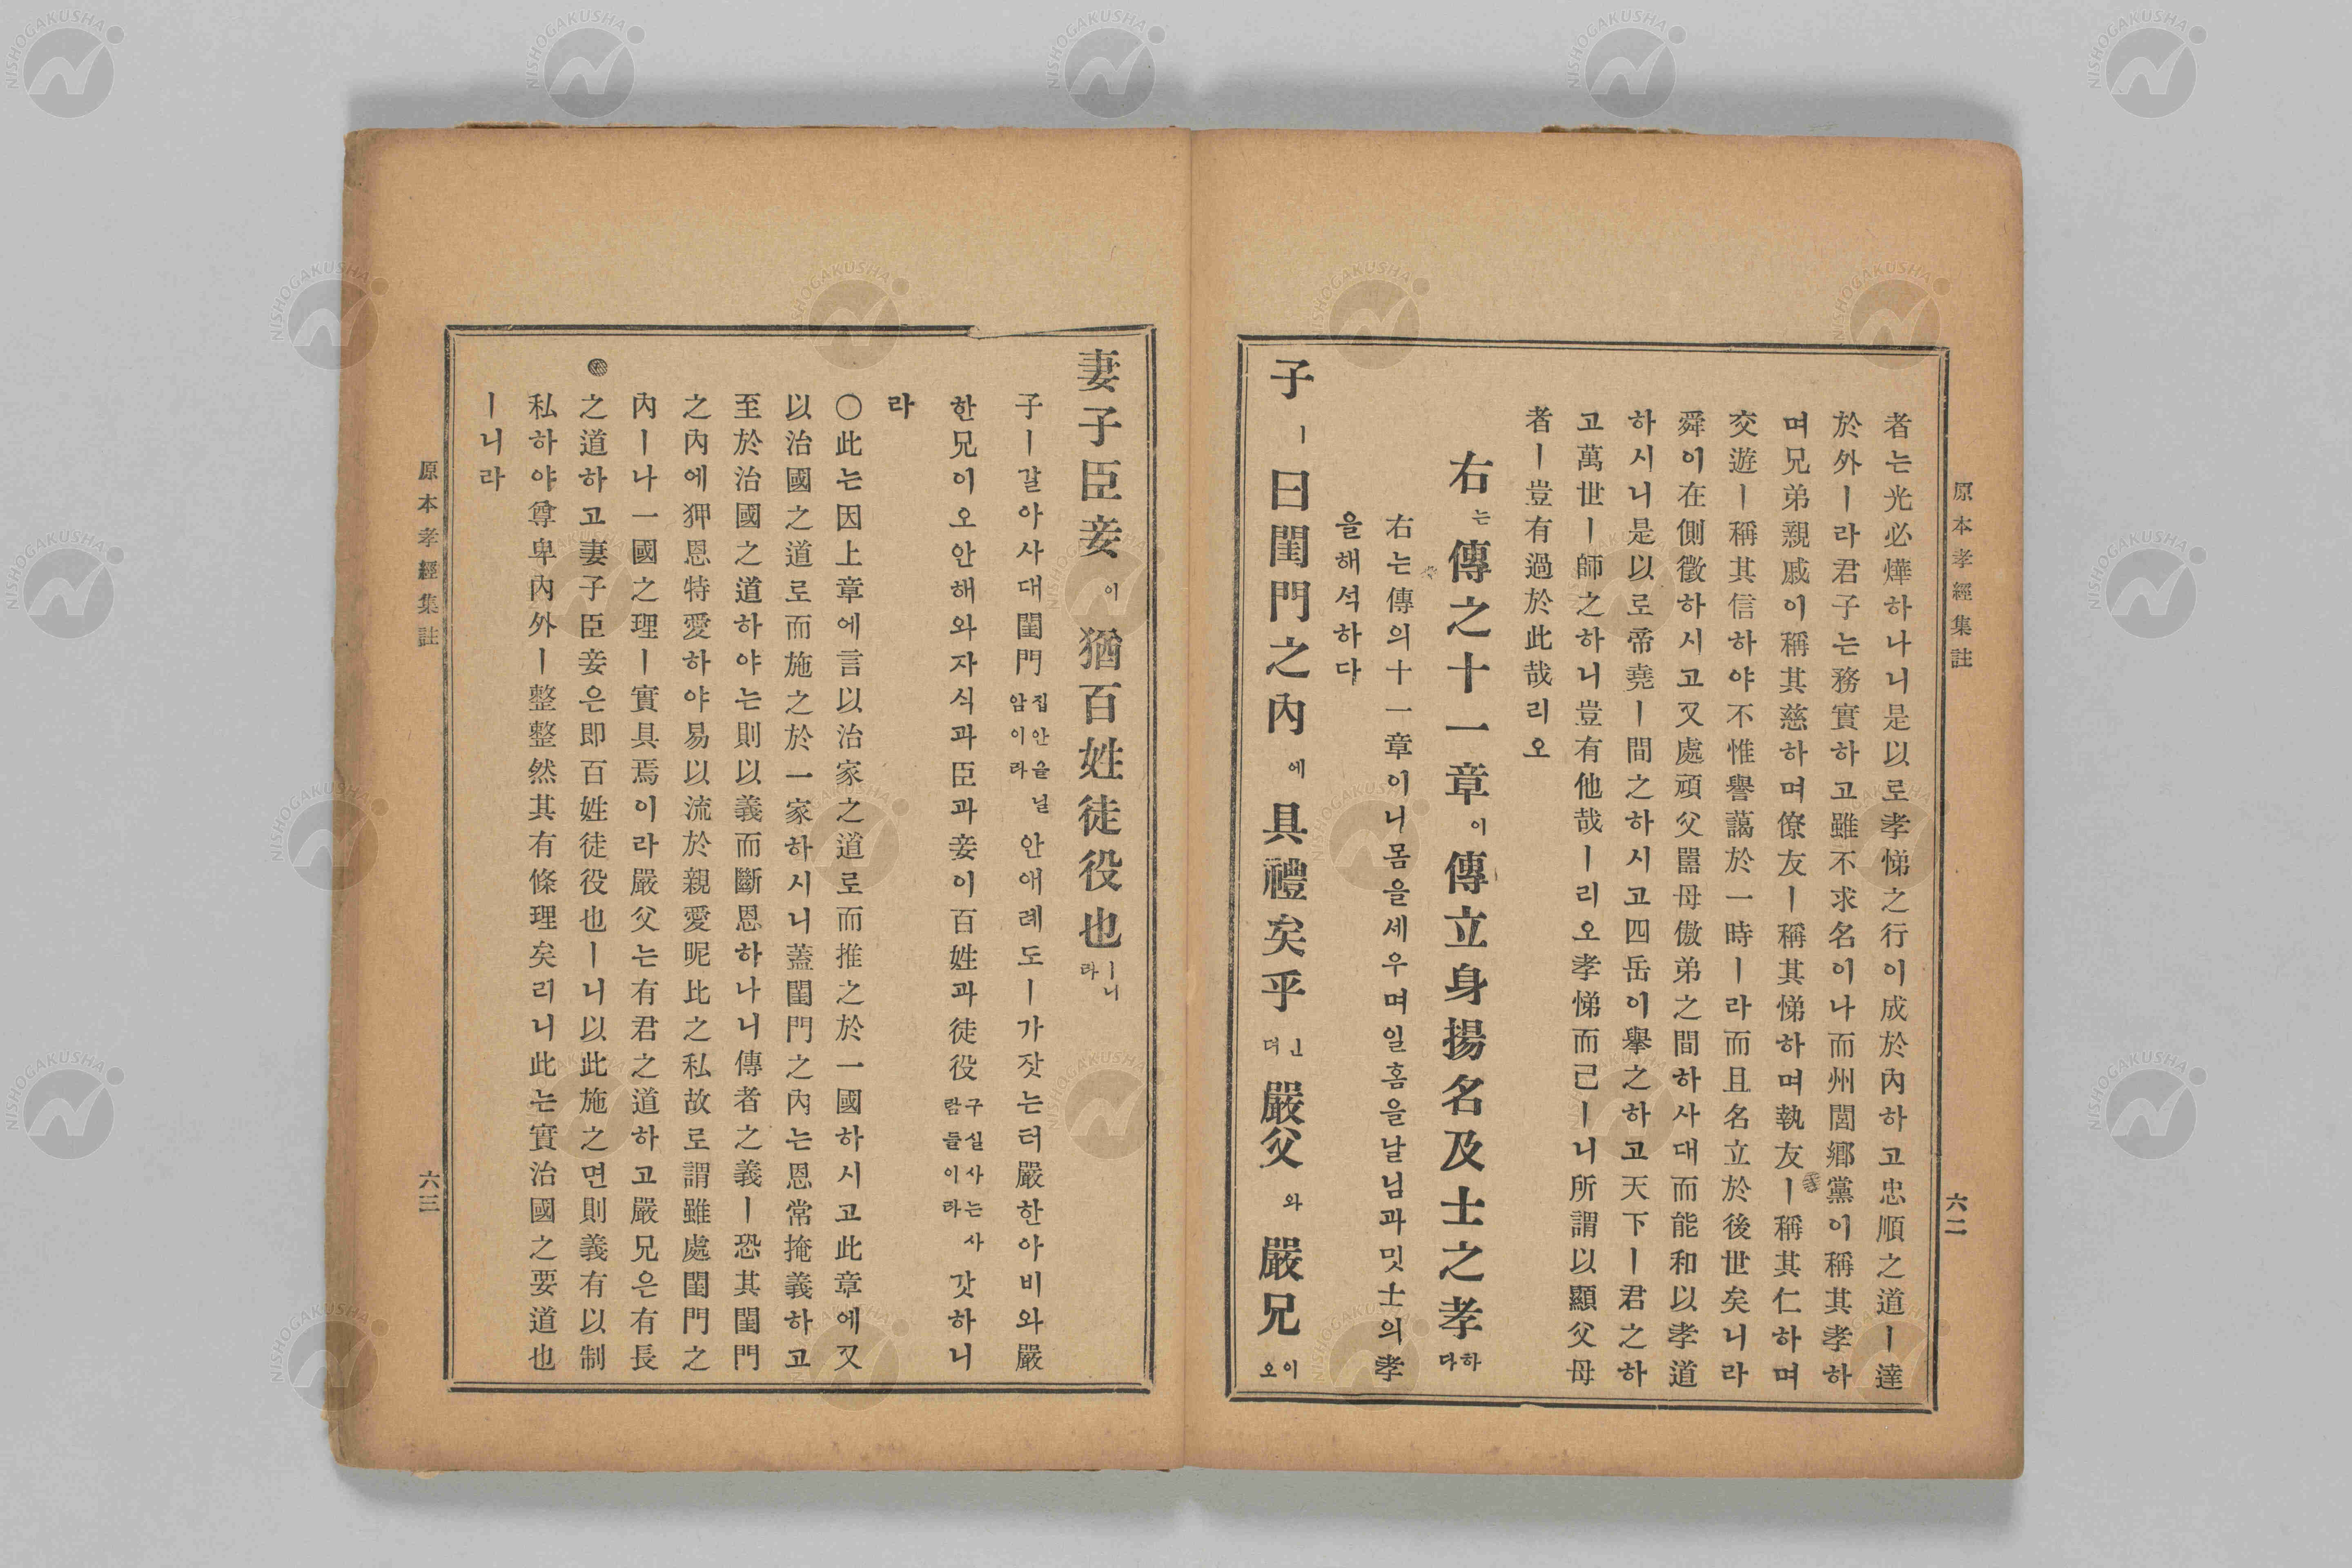 原本孝經集註
六二
者는光必燁하나니是以로孝悌之行이成於內하고忠順之道ㅣ達
於外ㅣ라君子는務實하고雖不求名이나而州閭鄕黨이稱其孝하
며兄弟親戚이稱其慈하며僚友ㅣ稱其悌하며執友ㅣ稱其仁하며
交遊ㅣ稱其信하야不惟譽藹於一時ㅣ라而且名立於後世矣니라
舜이在側微하시고又處頑父嚚母傲弟之間하사대而能和以孝道
하시니是以로帝堯ㅣ間之하시고四岳이擧之하고天下ㅣ君之하
고萬世ㅣ師之하니豈有他哉ㅣ리오孝悌而己ㅣ니所謂以顯父母
者ㅣ豈有過於此哉리오
右는傳之十一章이傳立身揚名及士之孝하다
右는傳의十一章이니몸을세우며일홈을날님과밋士의孝
을해석하다
子ㅣ曰閨門之內에具禮矣乎닌뎌嚴父와嚴兄이오
妻子臣妾이猶百姓徒役也ㅣ니라
子ㅣ갈아사대閨門집안을닐암이라안애례도ㅣ가잣는뎌嚴한아비와嚴
한兄이오안해와자식과臣과妾이百姓과徒役구실사는사람들이라갓하니
라
〇此는因上章에言以治家之道로而推之於一國하시고此章에又
以治國之道로而施之於一家하시니蓋閨門之內는恩常掩義하고
至於治國之道하야는則以義而斷恩하나니傳者之義ㅣ恐其閨門
之內에狎恩特愛하야易以流於親愛昵比之私故로謂雖處閨門之
內ㅣ나一國之理ㅣ實具焉이라嚴父는有君之道하고嚴兄은有長
之道하고妻子臣妾은即百姓徒役也ㅣ니以此施之면則義有以制
私하야尊卑內外ㅣ整整然其有條理矣리니此는實治國之要道也
ㅣ니라
原本孝經集註
六三